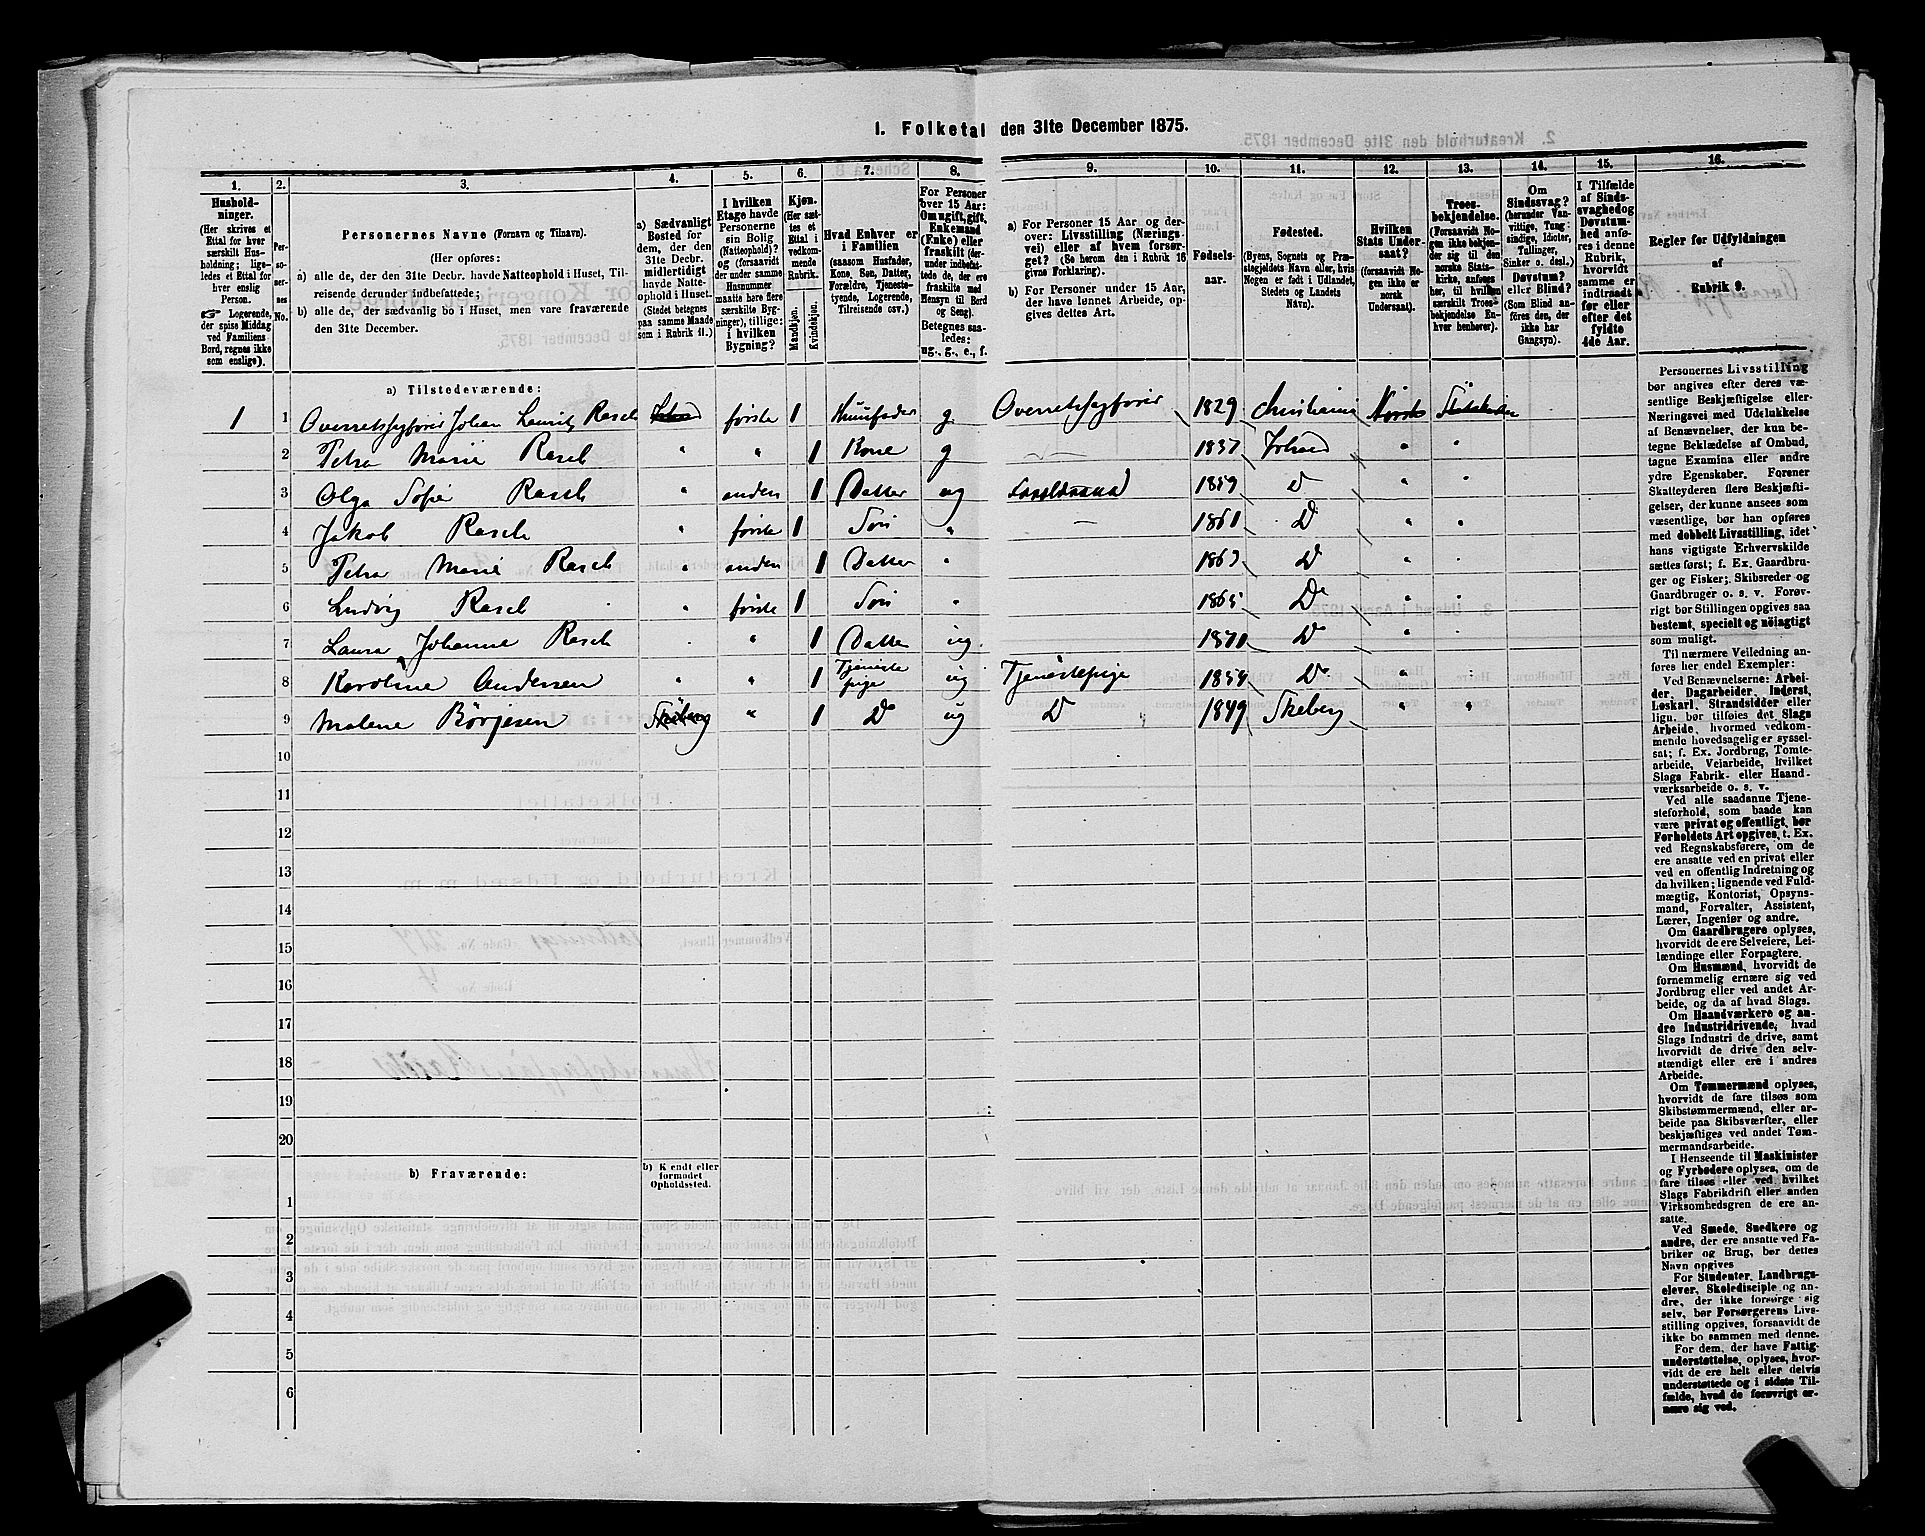 1. Folketal den 31te December 1875.
1. 2. 3. 4. 5. 6. 7. 8. 9. 10. 11. 12. 13. 14. 15. 16.
Hushold-
ninger.
(Her skrives et
Ettal for hver
særskilt Hus-
holdning; lige-
ledes et Ettal for
hver enslig
Person.
☞ Logerende,
der spise Middag
ved Familiens
Bord, regnes ikke
som enslige).
Per-
so-
ner-
nes
No.
Personernes Navne (Fornavn og Tilnavn).
(Her opføres:
a) alle de, der den 31te Decbr. havde Natteophold i Huset, Til-
reisende derunder indbefattede;
b) alle de, der sædvanlig bo i Huset, men vare fraværende
den 31te December.
a) Sædvanligt
Bosted for
dem, der den
31te Decbr.
midlertidigt
havde Natte-
ophold i Huset.
(Stedet betegnes
paa samme Maade
som i Rubrik 11.)
I hvilken
Etage havde
Personerne
sin Bolig
(Natteophold)?
og (forsaavidt
der under samme
Husnummer
maatte høre flere
særskilte Byg-
ninger), tillige:
i hvilken
Bygning?
Kjøn.
(Her sæt-
tes et
Ettal i
vedkom-
mende
Rubrik.
Mandkjøn.
Kvindekjøn.
Hvad Enhver er
i Familien
(saasom Husfader,
Kone, Søn, Datter,
Forældre, Tjeneste-
tyende, Logerende,
Tilreisende osv.)
For Personer
over 15 Aar:
Om ugift, gift,
Enkemand
(Enke) eller
fraskilt (her-
under indbefat-
tede de, der ere
fraskilte med
Hensyn til Bord
og Seng).
Betegnes saa-
ledes:
ug., g., e., f.
a) For Personer 15 Aar og der-
over: Livsstilling (Nærings-
vei) eller af hvem forsør-
get? (Se herom den i Rubrik 16
givne Forklaring).
b) For Personer under 15 Aar,
der have lønnet Arbeide, op-
gives dettes Art.
Fødsels-
aar.
Fødested.
(Byens, Sognets og Præ-
stegjeldets Navn eller, hvis
Nogen er født i Udlandet,
Stedets og Landets
Navn).
Hvilken
Stats Under-
saat?
(forsaavidt No-
gen ikke er
norsk
Undersaat).
Troes-
bekjendelse.
(Forsaavidt No-
gen ikke bekjen-
der sig til den
norske Stats-
kirke, anføres
her, til hvilken
særskilt Troes-
bekjendelse En-
hver henhører).
Om
Sindssvag?
(herunder Van-
vittige, Tung-
sindige, Idioter,
Tullinger,
Sinker o. desl.)
Døvstum?
eller Blind?
(Som Blind an-
føres den, der
ikke har
Gangsyn).
I Tilfælde
af Sinds-
svaghed og
Døvstum-
hed anfø-
res i denne
Rubrik,
hvorvidt
samme er
indtraadt
før eller
efter det
fyldte
4de Aar.
Regler for Udfyldningen
af
Rubrik 9.
a) Tilstedeværende:
1 1 Overretssagfører Johan Lauritz Rasch første 1 Huusfader g Overretssagfører 1829 Christiania Norsk Statskirken
2 Petra Marie Rasch " " 1 Kone g 1837 " "
3 Olga Sofie Rasch " anden 1 Datter ug 1859 D " "
4 Jakob Rasch " første 1 Søn " — 1861 D " "
5 Petra Marie Rasch " anden 1 Datter " 1863 D " "
6 Ludvig Rasch " første 1 Søn " 1865 Do " "
7 Laura Johanne Rasch " " 1 Datter ug. 1870 Do " "
8 Karoline Andersen " " 1 Tjeneste pige ug Tjenestepige 1854 Do " "
9 Malene Börjesen Skeberg " 1 Do ug D 1849 Skeberg " "
10
11
12
13
14
15
16
17
18
19
20
b) Fraværende: b) Kjendt eller
formodet
Opholdssted.
1
2
3
4
5
6
Personernes Livsstilling
bør angives efter deres væ-
sentlige Beskjæftigelse eller
Næringsvei med Udelukkelse
af Benævnelser, der kun be-
tegne Beklædelse af Ombud,
tagne Examina eller andre
ydre Egenskaber. Forener
Skatteyderen flere Beskjæfti-
gelser, der kunne ansees som
væsentlige, bør han opføres
med dobbelt Livsstilling, idet
hans vigtigste Erhvervskilde
sættes først; f. Ex. Gaardbru-
ger og Fisker; Skibsreder og
Gaardbruger o. s. v. Forøv-
rigt bør Stillingen opgives saa
bestemt, specielt og nöiagtigt
som muligt.
Til nærmere Veiledning an-
føres her endel Exempler:
Ved Benævnelserne: Arbei-
der, Dagarbeider, Inderst,
Løskarl, Strandsidder eller
lign. bør tilføies det Slags
Arbeide, hvormed vedkom-
mende hovedsagelig er syssel-
sat; f. Ex. Jordbrug, Tomte-
arbeide, Veiarbeide, hvilket
Slags Fabrik- eller Haand-
værksarbeide o. s. v.
Ved alle saadanne Tjene-
steforhold, som baade kan
være privat og offentligt, bør
Forholdets Art opgives, t. Ex.
ved Regnskabsførere, om de
ere ansatte ved en privat eller
ved en offentlig Indretning og
da hvilken; lignende ved Fuld-
mægtig, Kontorist, Opsyns-
mand, Forvalter, Assistent,
Lærer, Ingeniør og andre.
Om Gaardbrugere oplyses,
hvorvidt de ere Selveiere, Lei-
lændinge eller Forpagtere.
Om Husmænd, hvorvidt de
fornemmelig ernære sig ved
Jordbrug eller ved andet Ar-
beide, og da af hvad Slags.
Om Haandværkere og an-
dre Industridrivende, hvad
Slags Industri de drive, samt
hvorvidt de drive den selv-
stændigt eller ere i andres
Arbeide.
Om Tømmermænd oplyses,
hvorvidt de fare tilsøs som
Skibstømmermænd, eller ar-
beide paa Skibsværfter, eller
beskjæftiges ved andet Tøm-
mermandsarbeide.
I Henseende til Maskinister
og Fyrbødere oplyses, om de
fare tilsøs eller ved hvilket
Slags Fabrikdrift eller anden
Virksomhedsgren de ere an-
satte.
Ved Smede, Snedkere og
andre, der ere ansatte ved Fa-
briker og Brug, bør dettes
Navn opgives
For Studenter, Landbrugs-
elever, Skoledisciple og an-
dre, der ikke forsørge sig
selv, bør Forsørgerens Livs-
stilling opgives, forsaavidt de
ikke bo sammen med denne.
For dem, der have Fattig-
understøttelse, oplyses, hvor-
vidt de ere helt eller delvis
understøttede og i sidste Til-
fælde, hvad de forøvrigt er-
nære sig ved.